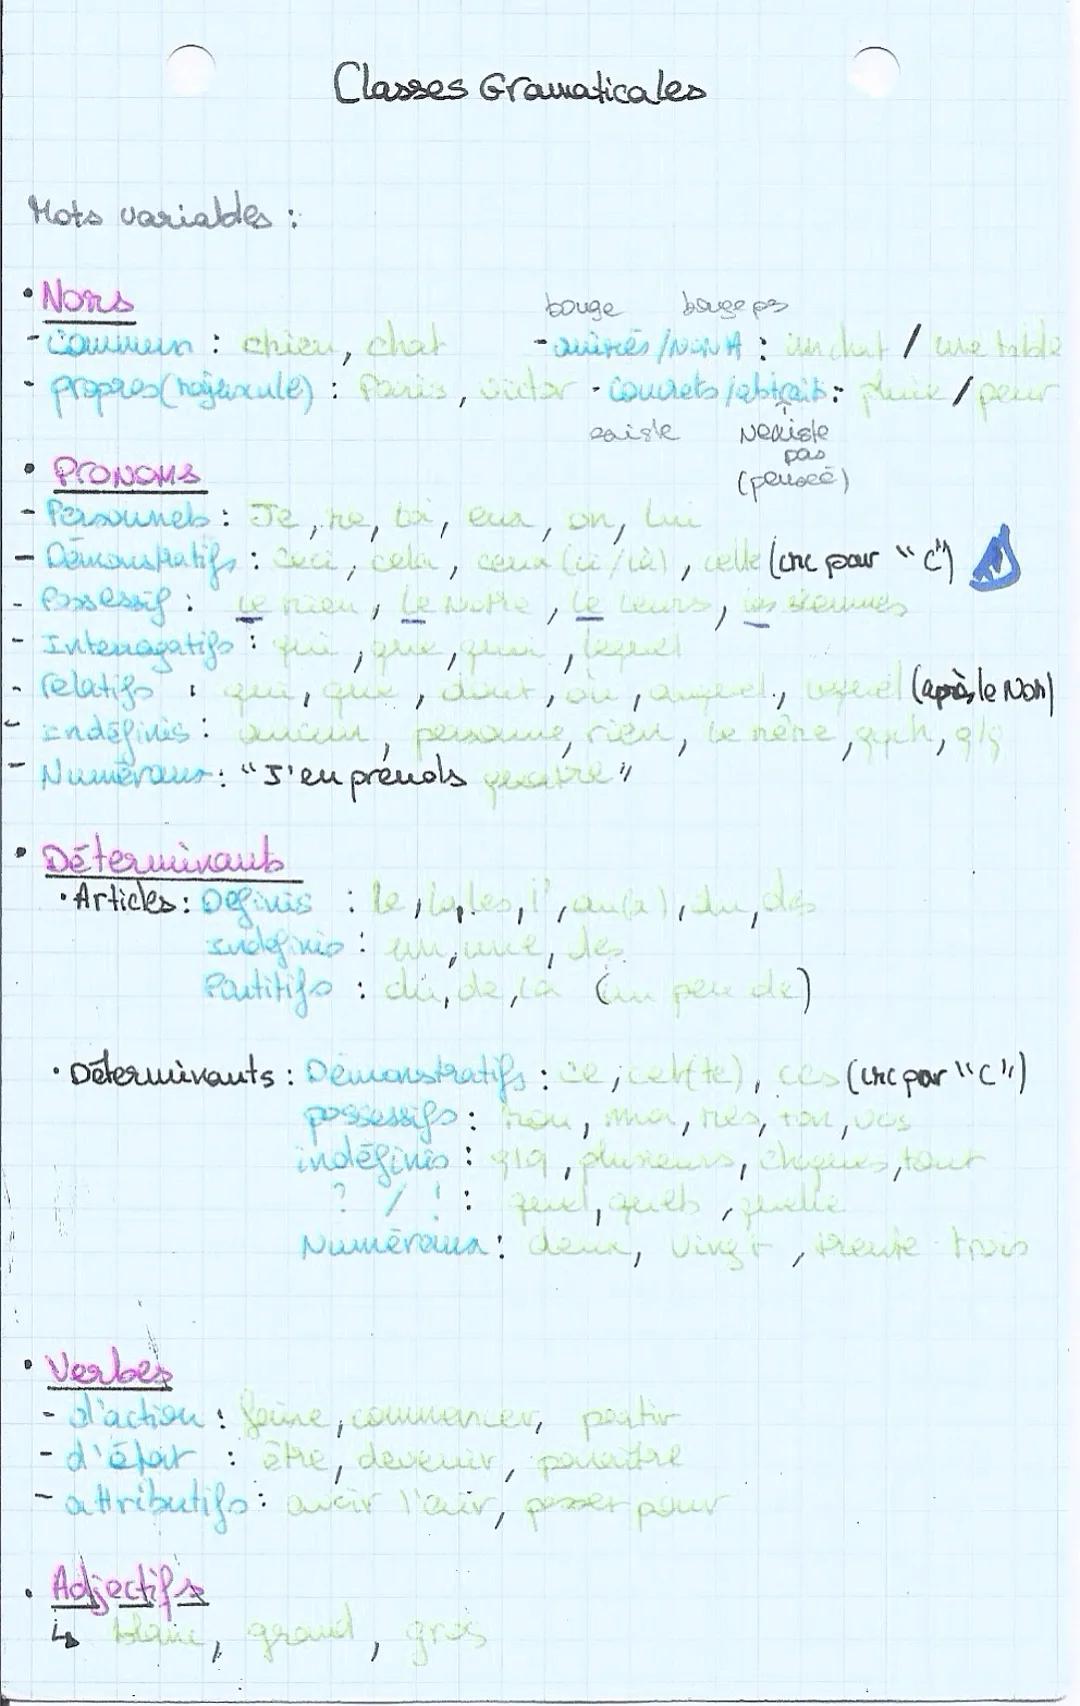 Classes Gramaticales
Mots variables :
• Noms
bouge bouge pas
- Commun : chien, chat - animés / NON A : un chat / une table
- propres (majuscule) : Paris, victor - Concrets / abstraits : pluie / peur
existe N'existe
pas
(pensée)
• PRONOMS
- Personnels : Je, me, toi, eux, on, lui
- Démonstratifs : Ceci, cela, ceux (ci / là), celle (cmc par "C")
- Possessif : Le mien, Le Notre, le Leurs, les siennes
- Interrogatifs : qui, que, quoi, lequel
- relatifs : qui, que, dont, où, auquel, lequel (après le Nom)
- Indéfinis : aucun, personne, rien, le même, qqch, qlq
- Numéraux : "J'en prends quatre"
• Déterminants
• Articles : Définis : le, la, les, l', au(x), du, des
Indéfinis : un, une, des
Partitifs : du, de, la (un peu de)
• Déterminants : Démonstratifs : ce, cet(te), ces (cmc par "C")
possessifs : mon, ma, mes, ton, vos
indéfinis : qlq, plusieurs, chaques, tout
? / ! : quel, quels, quelle
Numéraux : deux, vingt, trente trois
• Verbes
- d'action : faire, commencer, partir
- d'état : être, devenir, paraître
- attributifs : avoir l'air, passer pour
• Adjectifs
↳ blanc, grand, gros